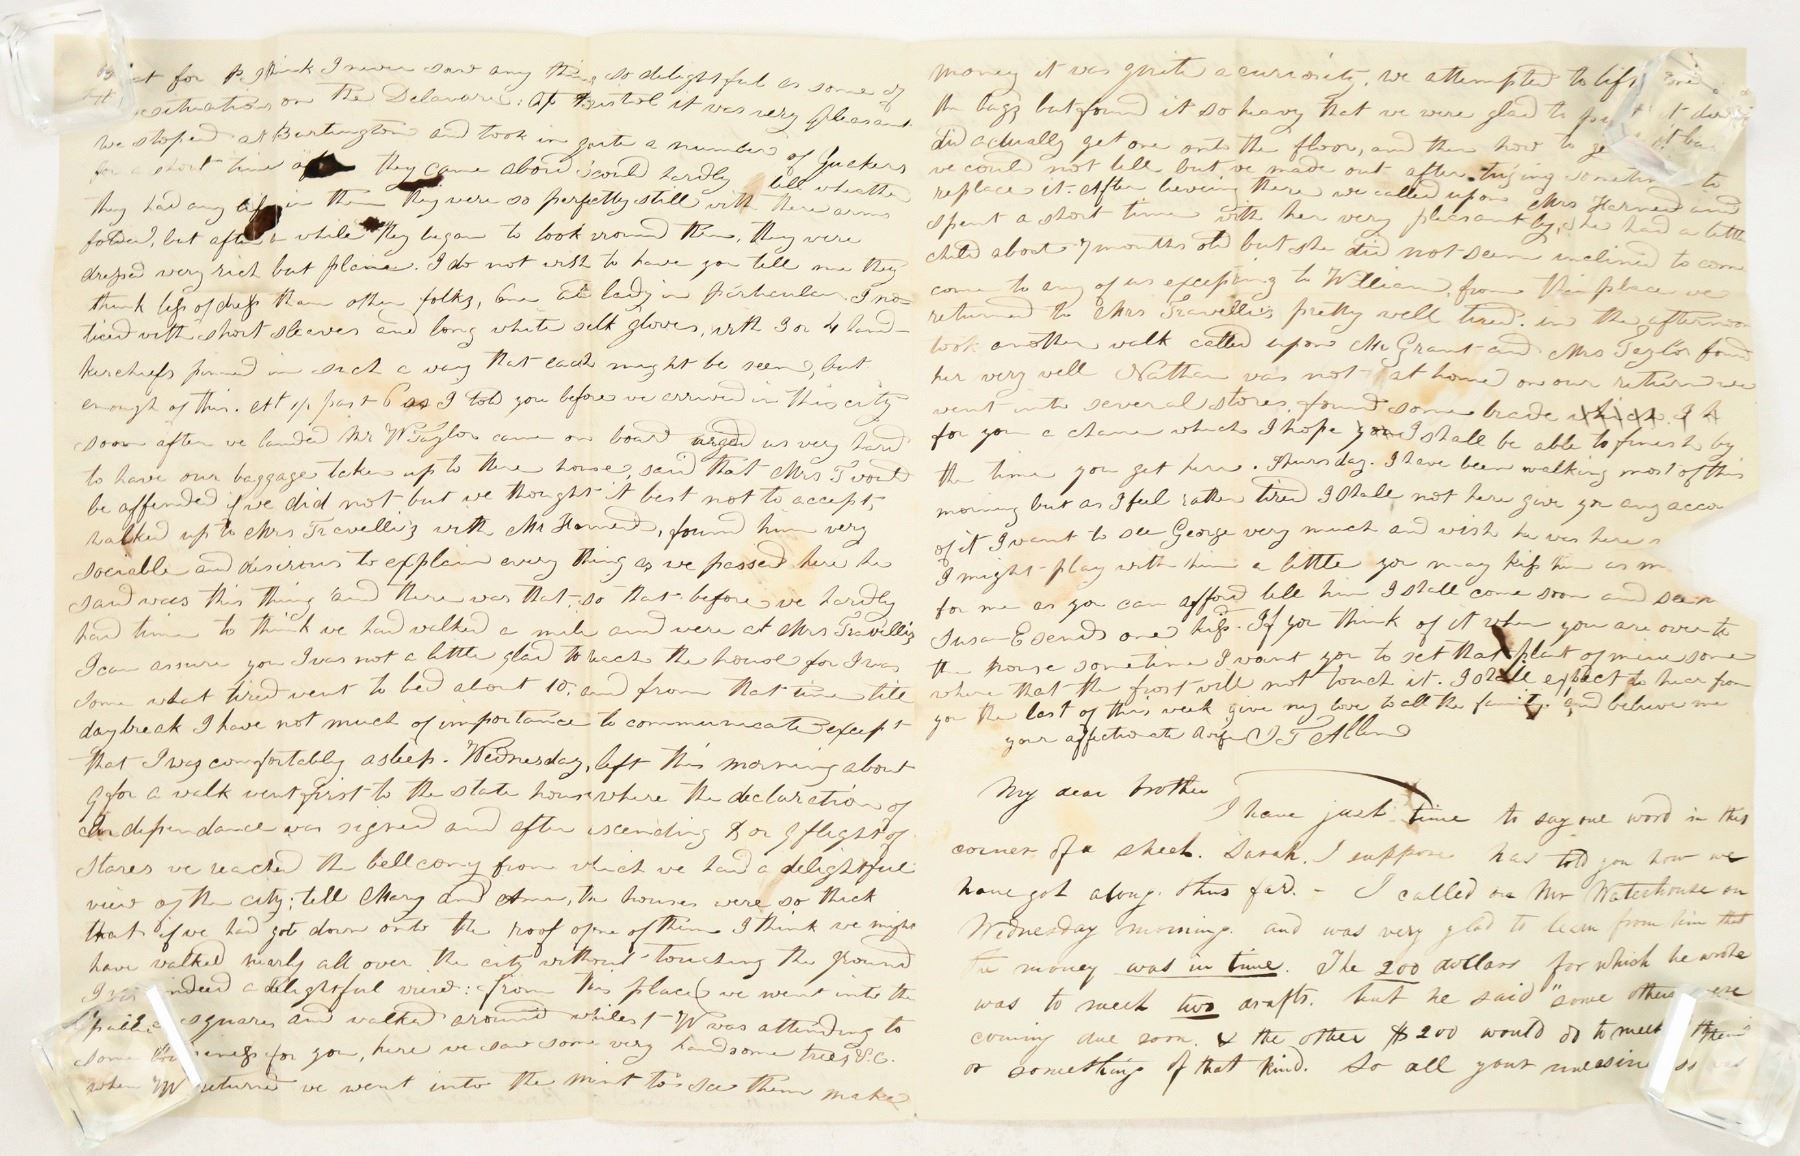 for I think I never saw any thing so delightful as some of
situations on the Delaware; at Bristol it was very pleasant
we stoped at Burlington and took in quite a number of Quakers
for a short time they came aboard could hardly tell whether
they had any life in them they were so perfectly still with there arms
folded, but after a while they began to look around them, they were
dressed very rich but plaine. I do not wish to have you tell me they
think less of dress than other folks, One lady in particular I no-
ticed with short sleaves and long white silk gloves, with 3 or 4 hand-
kerchiefs pinned in such a way that each might be seen, but
enough of this. At ½ past 6 as I told you before we arrived in this city
soon after we landed Mr W Taylor came on board urged us very hard
to have our baggage taken up to there house, said that Mrs T would
be affended if we did not but we thought it best not to accept,
walked up to Mrs Travelli's with Mr Harned, found him very
sociable and desirous to explain every thing as we passed here he
said was this thing and there was that, so that before we hardly
had time to think we had walked a mile and were at Mrs Travelli's
I can assure you I was not a little glad to reach the house for I was
some what tired went to bed about 10, and from that time till
day break I have not much of importance to communicate except
that I was comfortably asleep. Wednesday, left this morning about
9 for a walk went first to the state house where the declaration of
Independance was signed and after ascending 8 or 9 flight of
stares we reached the bellcony from which we had a delightful
view of the city; tell Mary and Anna, the houses were so thick
that if we had got down onto the roof of one of them I think we might
have walked nearly all over the city without touching the ground
I was indeed a delightful view: from this place we went into the
squares and walked around whilest W was attending to
some business for you, here we saw some very handsome trees, &.C.
when W returned we went into the mint to see them make
money it was quite a curiosity, we attempted to lift one
the bags but found it so heavy that we were glad to put it down
did actually get one onto the floor, and then how to get it back
we could not tell but we made out after trying sometime to
replace it. After leaving there we called upon Mrs Harned and
spent a short time with her very pleasantly, she had a little
child about 7 months old but she did not seem inclined to com
come to any of us excepting to William, from this place we
returned to Mrs Travellie's pretty well tired. in the afternoon
took another walk called upon Mr Grant and Mrs Taylor found
her very well Nathan was not at home on our return we
went into several stores, found some braide which I
for you a chane which I hope you I shall be able to finish by
the time you get here. Thursday. I have been walking most of this
morning but as I feel rather tired I shall not here give you any accou
of it I want to see George very much and wish he was here
I might play with him a little you may kiss him as m
for me as you can afford tell him I shall come soon and see
Susan E sends one kiss. If you think of it when you are over to
the house sometime I want you to set that plant of mine some
where that the frost will not touch it. I shall expect to hear from
you the last of this week give my love to all the family. and believe me
your affectionate wife S T Allen
My dear brother
I have just time to say one word in this
corner of a sheet. Sarah, I suppose has told you how we
have got along thus far. - I called on Mr Waterhouse on
Wednesday morning. and was very glad to learn from him that
the money was in time. The 200 dollars for which he wrote
was to meet two drafts. but he said "some others were
coming due soon. & the other $200 would do to meet them"
or something of that kind. So all your uneasiness was